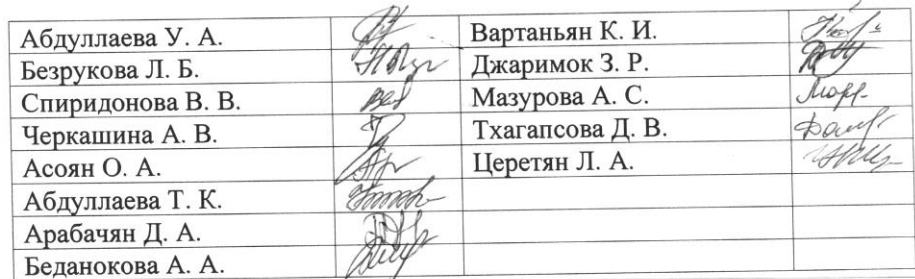 Абдуллаева У. А. Вартаньян К. И.
Безрукова Л. Б. Джаримок З. Р.
Спиридонова В. В. Мазурова А. С.
Черкашина А. В. Тхагапсова Д. В.
Асоян О. А. Церетян Л. А.
Абдуллаева Т. К.
Арабачян Д. А.
Беданокова А. А.